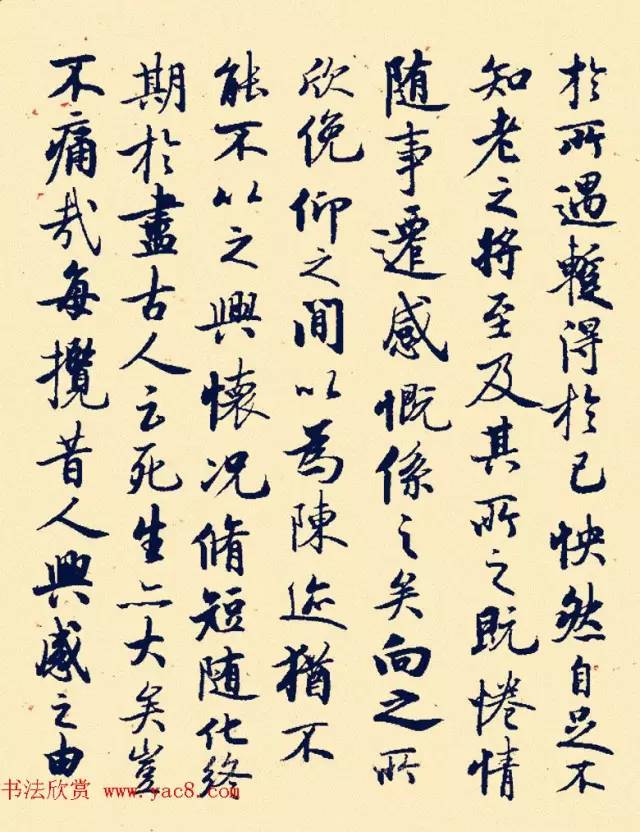 於所遇蹔得於己怏然自足不
知老之将至及其所之既惓情
随事遷感慨係之矣向之所
欣俛仰之間以為陳迹猶不
能不以之興懷况脩短随化終
期於盡古人云死生亦大矣豈
不痛哉每攬昔人興感之由
书法欣赏 www.yac8.com